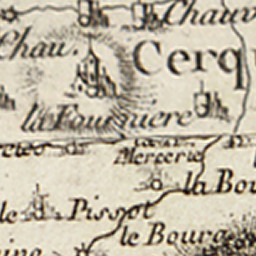 Chauv
Chau.
Cerq
la Fourniere
Mercerie
la Bou
le Pissot
le Bourg